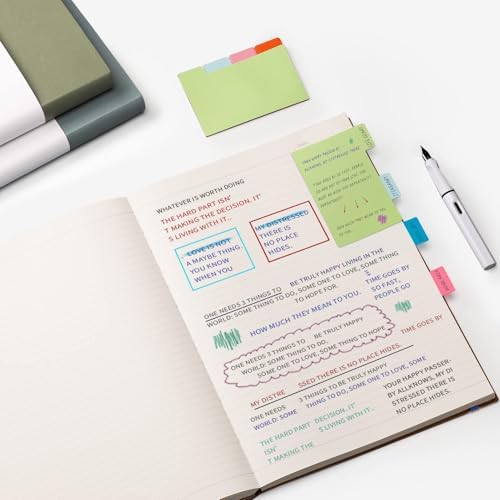 WHATEVER IS WORTH DOING
THE HARD PART ISN'
T MAKING THE DECISION, IT'
S LIVING WITH IT...
LOVE IS NOT
A MAYBE THING,
YOU KNOW
WHEN YOU
MY DISTRESSED
THERE IS
NO PLACE
HIDES.
ONE NEEDS 3 THINGS TO BE TRULY HAPPY LIVING IN THE
WORLD: SOME THING TO DO, SOME ONE TO LOVE, SOME THING
TO HOPE FOR.
TIME GOES BY
SO FAST,
PEOPLE GO
HOW MUCH THEY MEAN TO YOU.
ONE NEEDS 3 THINGS TO BE TRULY HAPPY
WORLD: SOME THING TO DO,
SOME ONE TO LOVE, SOME THING TO HOPE
TIME GOES BY
MY DISTRE SSED THERE IS NO PLACE HIDES.
ONE NEEDS 3 THINGS TO BE TRULY HAPPY
WORLD: SOME THING TO DO, SOME ONE TO LOVE, SOME
YOUR HAPPY PASSER-
BY ALLKNOWS, MY DI
STRESSED THERE IS
NO PLACE HIDES.
THE HARD PART DECISION, IT'
ISN' S LIVING WITH IT...
T MAKING THE